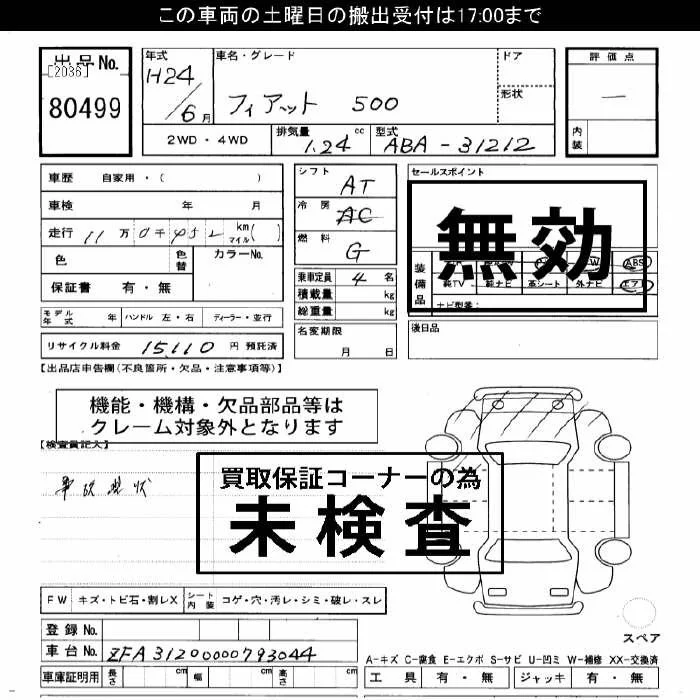 この車両の土曜日の搬出受付は17:00まで
出品No.
[2036]
80499
年式
H24/6月
車名・グレード
フィアット 500
ドア
形状
評価点
―
内装
2WD・4WD
排気量
1.24cc
型式
ABA-31212
車歴 自家用・( )
車検 年 月
走行 11万0千452km マイル( )
色
色替
カラーNo.
保証書 有・無
モデル年式 年
ハンドル 左・右
ディーラー・並行
リサイクル料金 15,110 円 預託済
シフト
AT
冷房
AC
燃料
G
乗車定員 4名
積載量 kg
総重量 kg
名変期限
月 日
セールスポイント
無効
装備品
ABS
純TV 純ナビ 革シート 外ナビ エアB
ナビ型番:
後日品
【出品店申告欄(不良箇所・欠品・注意事項等)】
機能・機構・欠品部品等は
クレーム対象外となります
【検査員記入】
事故現状
買取保証コーナーの為
未検査
FW キズ・トビ石・割レX
シート内装 コゲ・穴・汚レ・シミ・破レ・スレ
登録No.
車台No. ZFA31200000793044
車庫証明用 長さ cm 幅 cm 高さ cm
スペア
A-キズ C-腐食 E-エクボ S-サビ U-凹ミ W-補修 XX-交換済
工具 有・無 ジャッキ 有・無